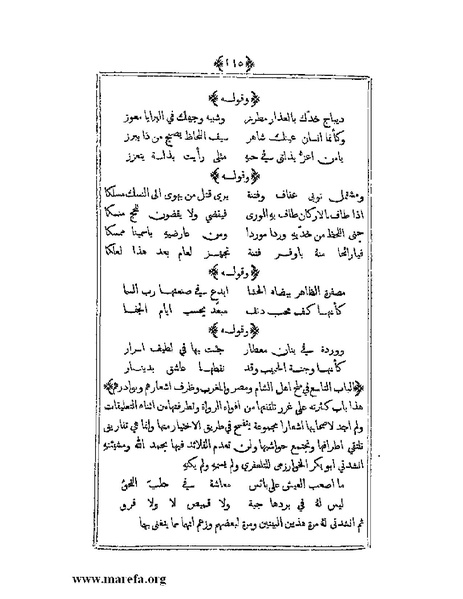 ﴿١١٥﴾
﴿وقوله﴾
ديباج خدك بالعذار مطرز وشبيه وجهك في البرايا معوز
وكأنما انسان عينك شاهر سيف اللحاظ يصيح من ذا يبرز
يا من اعزه بذلتي في حبه مثلي رأيت بذلة يتعزز
﴿وقوله﴾
ومشتمل ثوبي عفاف وفتنة يرى قتل من يهوى الى النسك مسلكا
اذا طاف بالاركان طاف به الورى فيقضي ولا يقضون للحج منسكا
جنى اللحظ من خديه وردا موردا ومن عارضيه ياسمينا ممسكا
فيا رائحا منه باوفر فتنة تجهز لعام بعد هذا لعلكا
﴿وقوله﴾
مصفرة الظاهر بيضاء الحشا ابدع في صنعتها رب السما
كأنها كف محب دنف مبعد يحسب ايام الجفا
﴿وقوله﴾
ووردة في بنان معطار جئت بها في لطيف اسرار
كأنها وجنة الحبيب وقد نقطها عاشق بدينار
﴿الباب التاسع في ملح اهل الشام ومصر والمغرب وظرف اشعارهم ونوادرهم﴾
هذا باب كثرته على غرر تلقفتها من افواه الرواة وتطرفتها من اثناء التعليقات
ولم اجد لاصحابها اشعارا مجموعة ينفسح في طريق الاختيار منها وانما هي تفاريق
تلتقي اطرافها وتجتمع حواشيها ولن تعدم القلائد فيها بحمد الله ومشيئته
انشدني ابو بكر الخوارزمي للتلعفري ولم يسمه ولم يكنه
ما اصعب العيش على بائس معاشة في حلب النحو
ليس له في بردها جبة ولا قميص لا ولا فرو
ثم انشدني له مرة هذين البيتين ومرة لبعضهم وزعم انها مما يتغنى بها
www.marefa.org